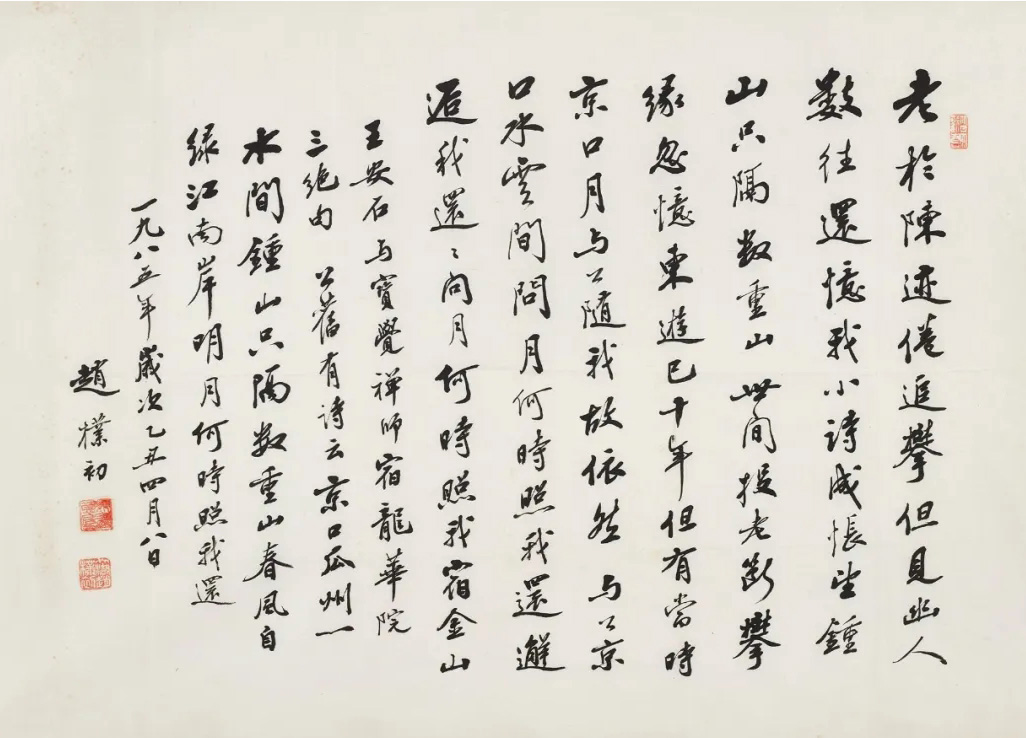 老於陳迹倦追攀但見幽人
數往還憶我小詩成悵望鍾
山只隔数重山 世间投老斷攀
緣忽憶東遊已十年但有當時
京口月与公隨我故依然 与公京
口水雲間問月何時照我還邂
逅我還〻問月何時照我宿金山
王安石与寳覺禅師宿龍華院
三絶句 公舊有詩云京口瓜州一
水間鍾山只隔数重山春風自
緑江南岸明月何時照我還
一九八五年歲次乙丑四月八日
趙樸初